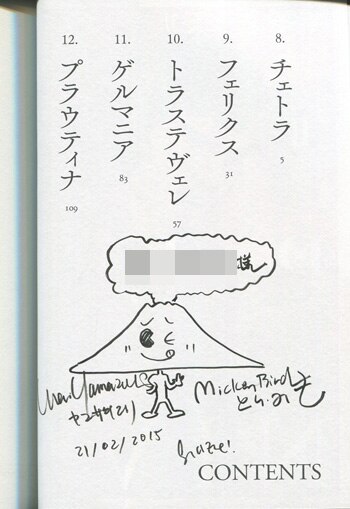 8.
チェトラ
5
9.
フェリクス
31
10.
トラステヴェレ
57
11.
ゲルマニア
83
12.
プラウティナ
109
様
Mari Yamazaki
ヤマザキマリ
21/02/2015
Mickey Bird
とり・みき
Grazie!
CONTENTS